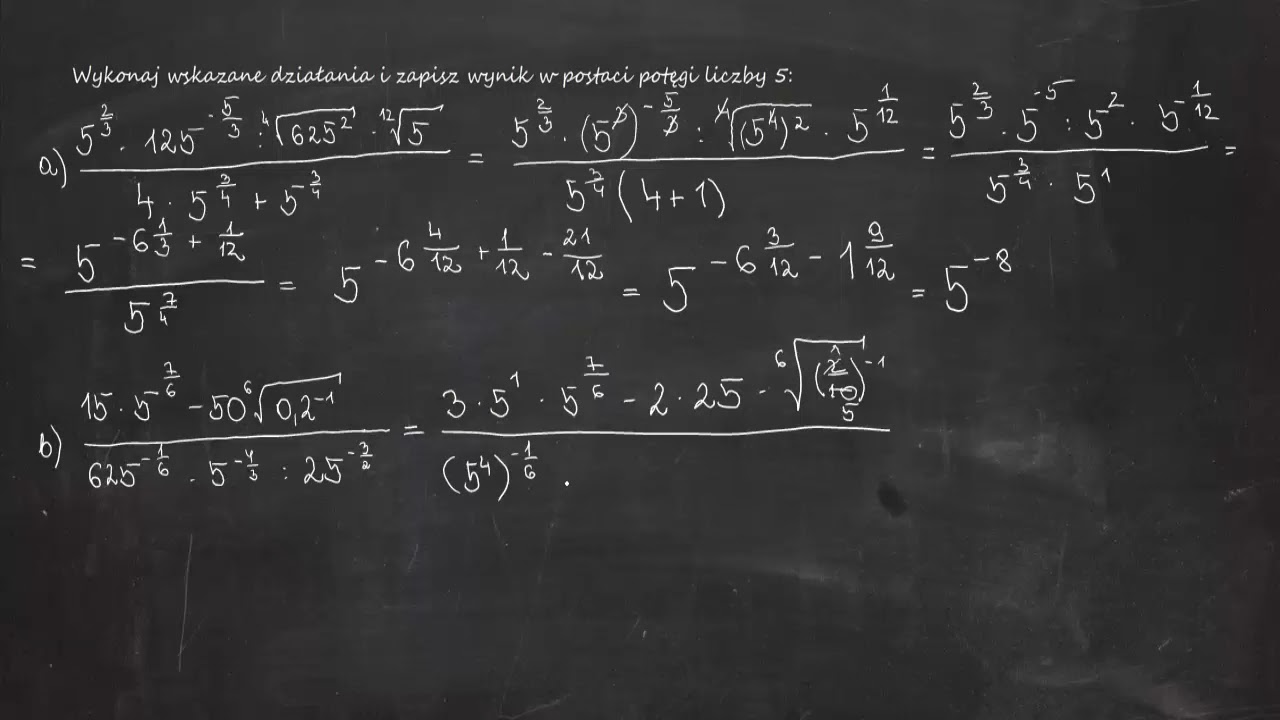 Wykonaj wskazane działania i zapisz wynik w postaci potęgi liczby 5:
a) \frac{5^{\frac{2}{3}} \cdot 125^{-\frac{5}{3}} : \sqrt[4]{625^2} \cdot \sqrt[12]{5}}{4 \cdot 5^{\frac{3}{4}} + 5^{\frac{3}{4}}} = \frac{5^{\frac{2}{3}} \cdot (5^3)^{-\frac{5}{3}} : \sqrt[4]{(5^4)^2} \cdot 5^{\frac{1}{12}}}{5^{\frac{3}{4}} (4+1)} = \frac{5^{\frac{2}{3}} \cdot 5^{-5} : 5^2 \cdot 5^{\frac{1}{12}}}{5^{\frac{3}{4}} \cdot 5^1} =
= \frac{5^{-6\frac{1}{3} + \frac{1}{12}}}{5^{\frac{7}{4}}} = 5^{-6\frac{4}{12} + \frac{1}{12} - \frac{21}{12}} = 5^{-6\frac{3}{12} - 1\frac{9}{12}} = 5^{-8}
b) \frac{15 \cdot 5^{\frac{7}{6}} - 50\sqrt[6]{0,2^{-1}}}{625^{-\frac{1}{6}} \cdot 5^{-\frac{4}{3}} : 25^{-\frac{3}{2}}} = \frac{3 \cdot 5^1 \cdot 5^{\frac{7}{6}} - 2 \cdot 25 \cdot \sqrt[6]{(\frac{2}{10} \frac{1}{5})^{-1}}}{(5^4)^{-\frac{1}{6}} \cdot}